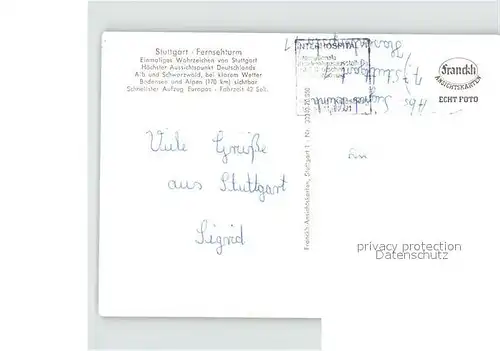 Stuttgart - Fernsehturm
Einmaliges Wahrzeichen von Stuttgart
Höchster Aussichtspunkt Deutschlands
Alb und Schwarzwald, bei klarem Wetter
Bodensee und Alpen (170 km) sichtbar
Schnellster Aufzug Europas - Fahrzeit 42 Sek.
INTERHOSPITAL
Franckh
ANSICHTSKARTEN
ECHT FOTO
Abs
7 Stuttgart 1
Viele Grüße
aus Stuttgart
Sigrid
Franckh-Ansichtskarten, Stuttgart 1 - Nr.
privacy protection
Datenschutz